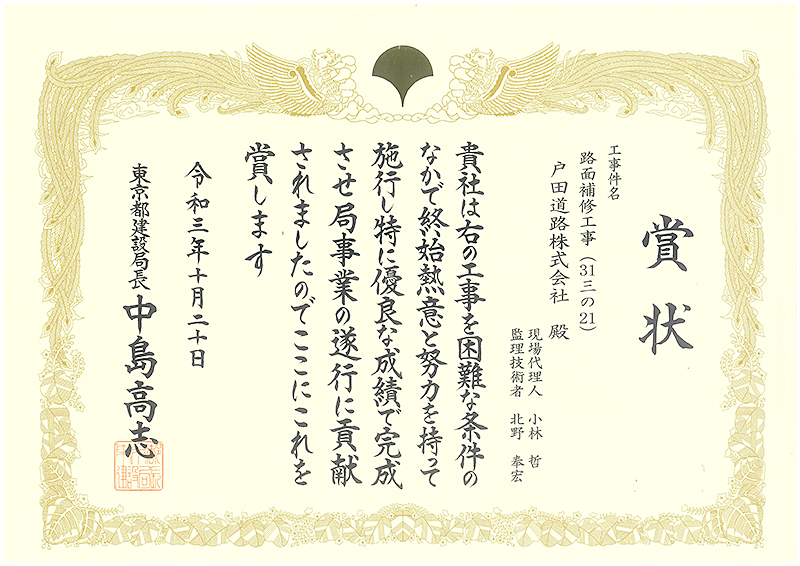 賞状
工事件名
路面補修工事(31三の21)
戸田道路株式会社 殿
現場代理人 小林 哲
監理技術者 北野 奉宏
貴社は右の工事を困難な条件の
なかで終始熱意と努力を持って
施行し特に優良な成績で完成
させ局事業の遂行に貢献
されましたのでここにこれを
賞します
令和三年十月二十日
東京都建設局長 中島高志